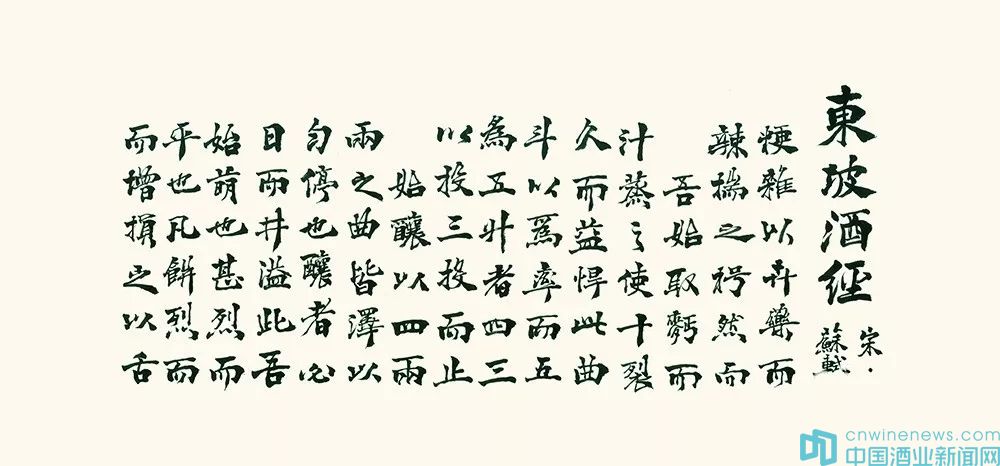 東坡酒經
宋·
蘇軾
粳雜以卉藥而
辣揣之枵然而
吾始取麪而
汁蒸之使十裂
久而益悍此曲
斗以爲率而五
為五升者四三
以投三投而止
始釀以四兩
兩之曲皆澤以
匀停也釀者必
日而井溢此吾
始萌也甚烈而
平也凡餅烈而
而增損之以舌
cnwinenews.com
中国酒业新闻网